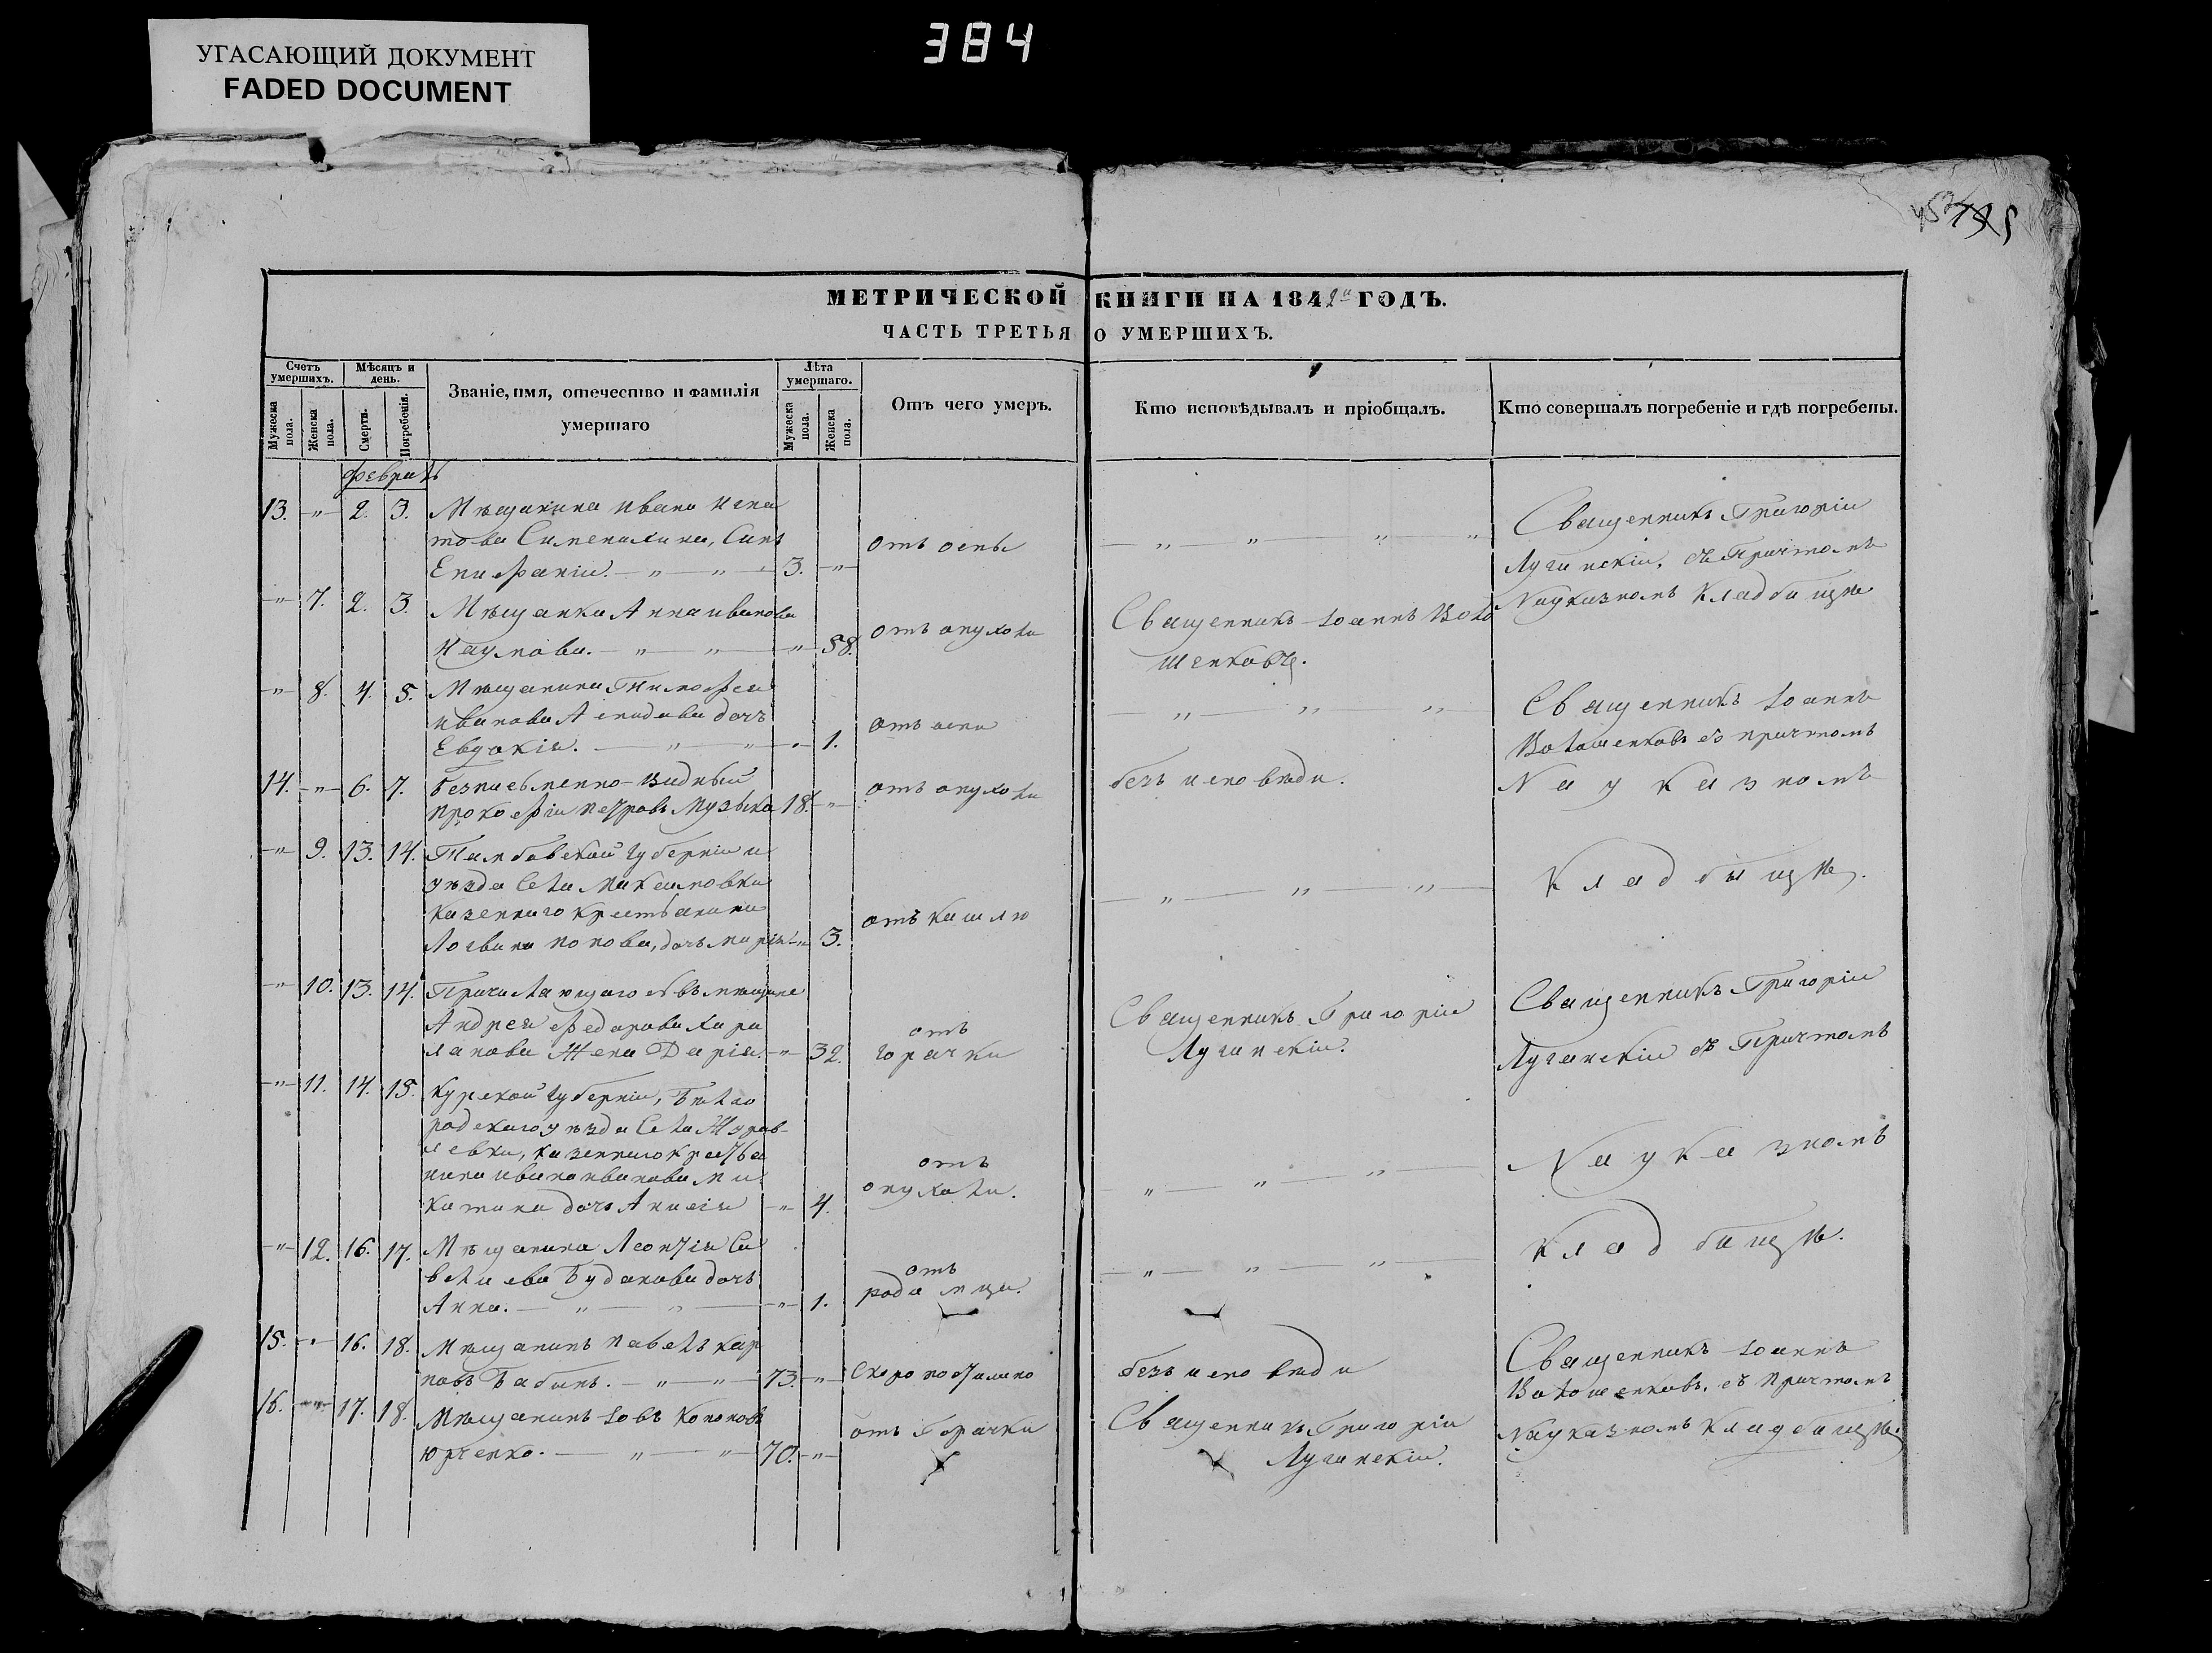 УГАСАЮЩИЙ ДОКУМЕНТ
FADED DOCUMENT
384
МЕТРИЧЕСКОЙ КНИГИ НА 1842й ГОДЪ.
ЧАСТЬ ТРЕТЬЯ О УМЕРШИХЪ.
Счетъ умершихъ.
Мѣсяцъ и день.
Званіе, имя, отечество и фамилія умершаго
Лѣта умершаго.
Отъ чего умеръ.
Кто исповѣдывалъ и пріобщалъ.
Кто совершалъ погребеніе и гдѣ погребены.
Мужеска пола.
Женска пола.
Смерти.
Погребенія.
Мужеска пола.
Женска пола.
февраль
13. — " — 2. 3. Мѣщанина Ивана Игна
това Сынъ
Епифаній. — " — " — 3. — " —
отъ оспы
— " — " — " — "
Священникъ Григорій
Луганскій, съ Причтомъ
На указномъ кладбищѣ
— " — 7. 2. 3. Мѣщанка Анна Иванова
Наумова. — " — " — " — 58.
отъ опухоли
Священникъ Іоаннъ Воло
шенковъ.
— " — 8. 4. 5. Мѣщанина Тимофея
Иванова дочь
Евдокія. — " — " — " — 1.
отъ оспы
— " — " — " —
Священникъ Іоаннъ
Волошенковъ съ причтомъ
На указномъ
14. — " — 6. 7. Безписьменно-видный
Прокофій Петровъ Музыка 18. — " —
отъ опухоли
безъ исповѣди.
— " — 9. 13. 14. Тамбовской Губерніи и
уѣзда Села
казеннаго крестьянина
Логвина Попова, дочь Марія — " — 3.
отъ кашлю
— " — " — " —
Кладбищѣ.
— " — 10. 13. 14. Причисляющагося въ мѣщане
Андрея Федорова Хар
ланова Жена Дарія. — " — 32.
отъ
горячки
Священникъ Григорій
Луганскій.
Священникъ Григорій
Луганскій съ Причтомъ
— " — 11. 14. 15. Курской Губерніи, Бѣлго
родскаго уѣзда Села Журав
левки, казеннаго крестья
нина Ивана Иванова Ми
китина дочь Анисія — " — 4.
отъ
опухоли.
— " — " — " —
На указномъ
— " — 12. 16. 17. Мѣщанина Леонтія Са
вельева Буданова дочь
Анна. — " — " — " — 1.
отъ
родимца.
— " — " — " —
Кладбищѣ.
15. — " — 16. 18. Мѣщанинъ Павелъ Кар
повъ Бабинъ. — " — " — 73. — " —
Скоропостижно
безъ исповѣди
Священникъ Іоаннъ
Волошенковъ, съ Причтомъ
16. — " — 17. 18. Мѣщанинъ Іовъ Кононовъ
Юрченко. — " — " — 70. — " —
отъ Горячки
Священникъ Григорій
Луганскій.
На указномъ кладбищѣ.